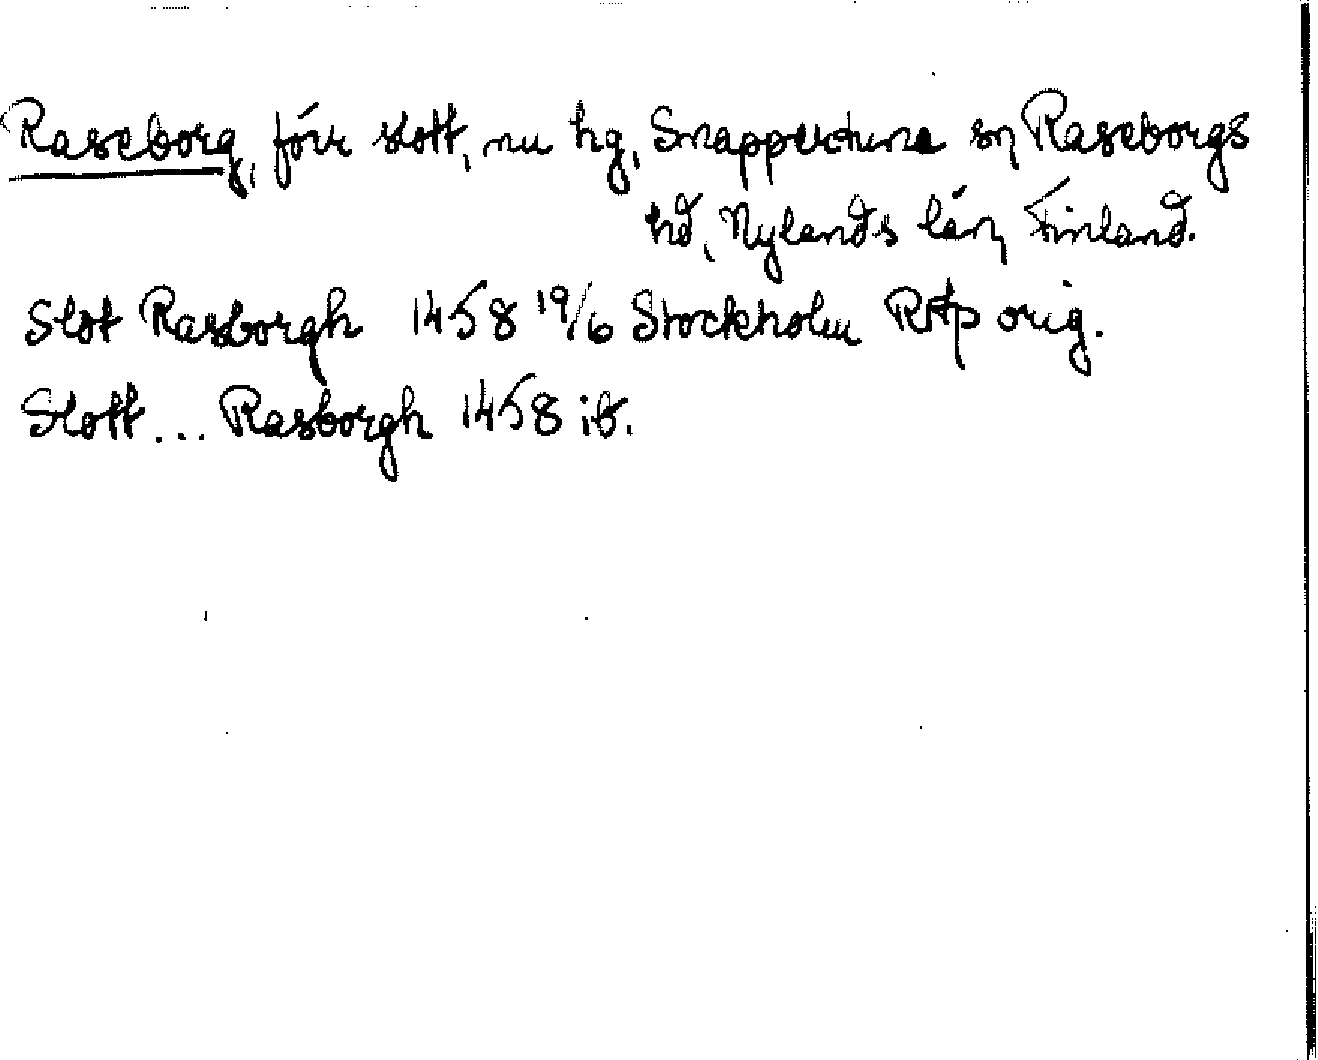 Raseborg, förr slott, nu hg, Snappertuna sn, Raseborgs
hd, Nylands län, Finland.
Slot Rasborgh 1458 19/6 Stockholm RAp orig.
Slott... Rasborgh 1458 ib.